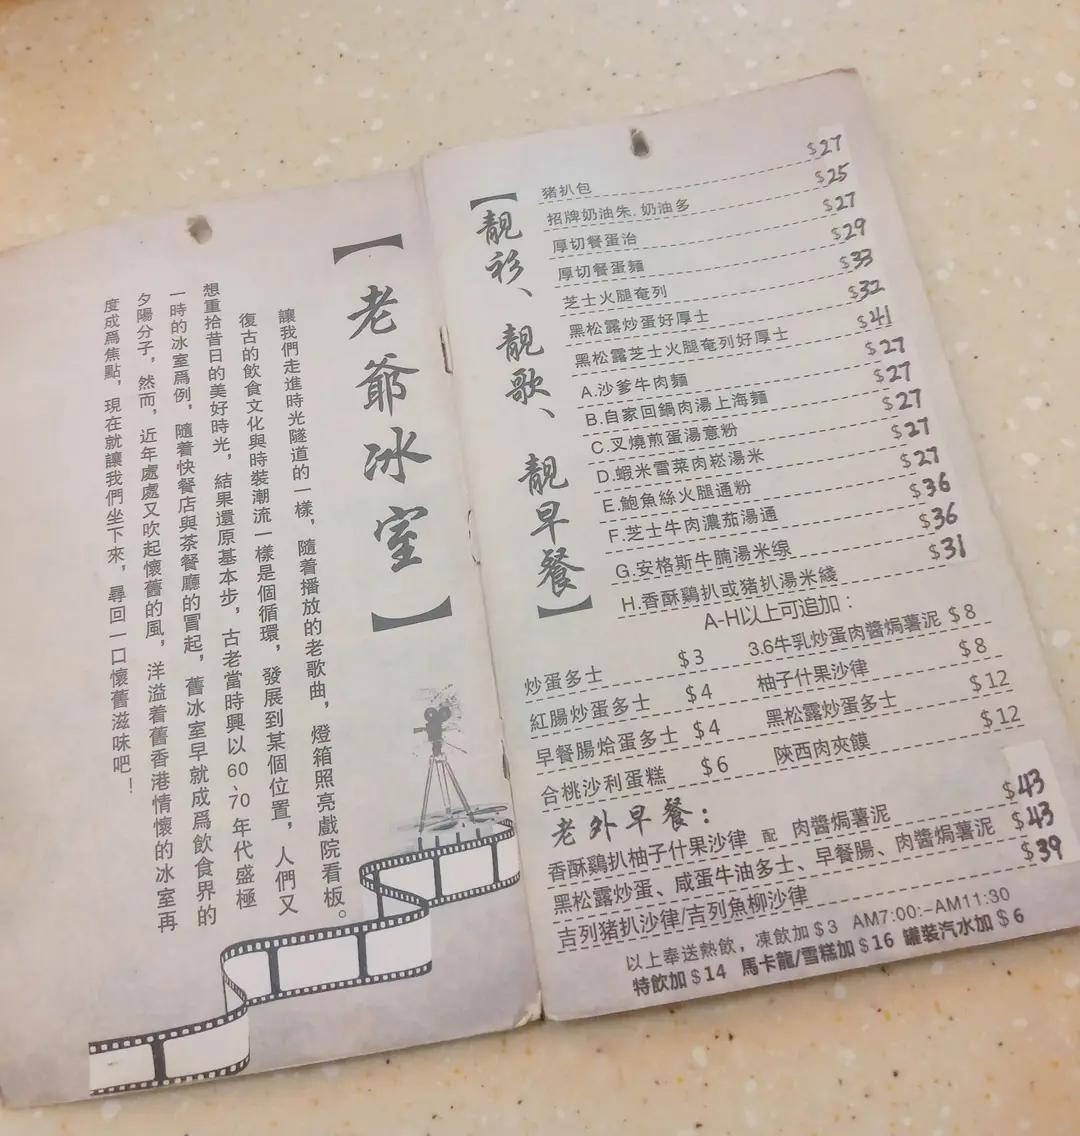 【老爺冰室】
讓我們走進時光隧道的一樣，隨着播放的老歌曲，燈箱照亮戲院看板。
復古的飲食文化與時裝潮流一樣是個循環，發展到某個位置，人們又
想重拾昔日的美好時光，結果還原基本步，古老當時興以60、70年代盛極
一時的冰室爲例，隨着快餐店與茶餐廳的冒起，舊冰室早就成爲飲食界的
夕陽分子，然而，近年處處又吹起懷舊的風，洋溢着舊香港情懷的冰室再
度成爲焦點，現在就讓我們坐下來，尋回一口懷舊滋味吧！
【靚衫、靚歌、靚早餐】
豬扒包 $27
招牌奶油朱.奶油多 $25
厚切餐蛋治 $27
厚切餐蛋麵 $29
芝士火腿奄列 $33
黑松露炒蛋好厚士 $32
黑松露芝士火腿奄列好厚士 $41
A.沙爹牛肉麵 $27
B.自家回鍋肉湯上海麵 $27
C.叉燒煎蛋湯意粉 $27
D.蝦米雪菜肉崧湯米 $27
E.鮑魚絲火腿通粉 $27
F.芝士牛肉濃茄湯通 $36
G.安格斯牛腩湯米缐 $36
H.香酥鷄扒或猪扒湯米綫 $31
A-H以上可追加：
炒蛋多士 $3 3.6牛乳炒蛋肉醬焗薯泥 $8
紅腸炒蛋多士 $4 柚子什果沙律 $8
早餐腸烚蛋多士 $4 黑松露炒蛋多士 $12
合桃沙利蛋糕 $6 陝西肉夾饃 $12
老外早餐：
香酥鷄扒柚子什果沙律 配 肉醬焗薯泥 $43
黑松露炒蛋、咸蛋牛油多士、早餐腸、肉醬焗薯泥 $43
吉列豬扒沙律/吉列魚柳沙律 $39
以上奉送熱飲，凍飲加$3 AM7:00:–AM11:30
特飲加$14 馬卡龍/雪糕加$16 罐裝汽水加$6